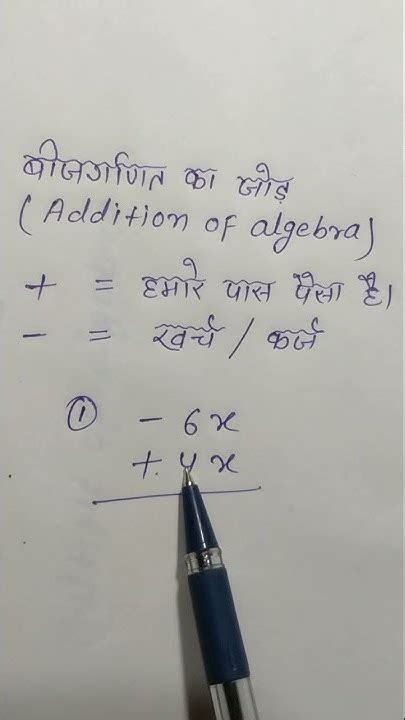 बीजगणित का जोड़
(Addition of algebra)
+ = हमारे पास पैसा है।
- = खर्च / कर्ज
① - 6x
+ 4x